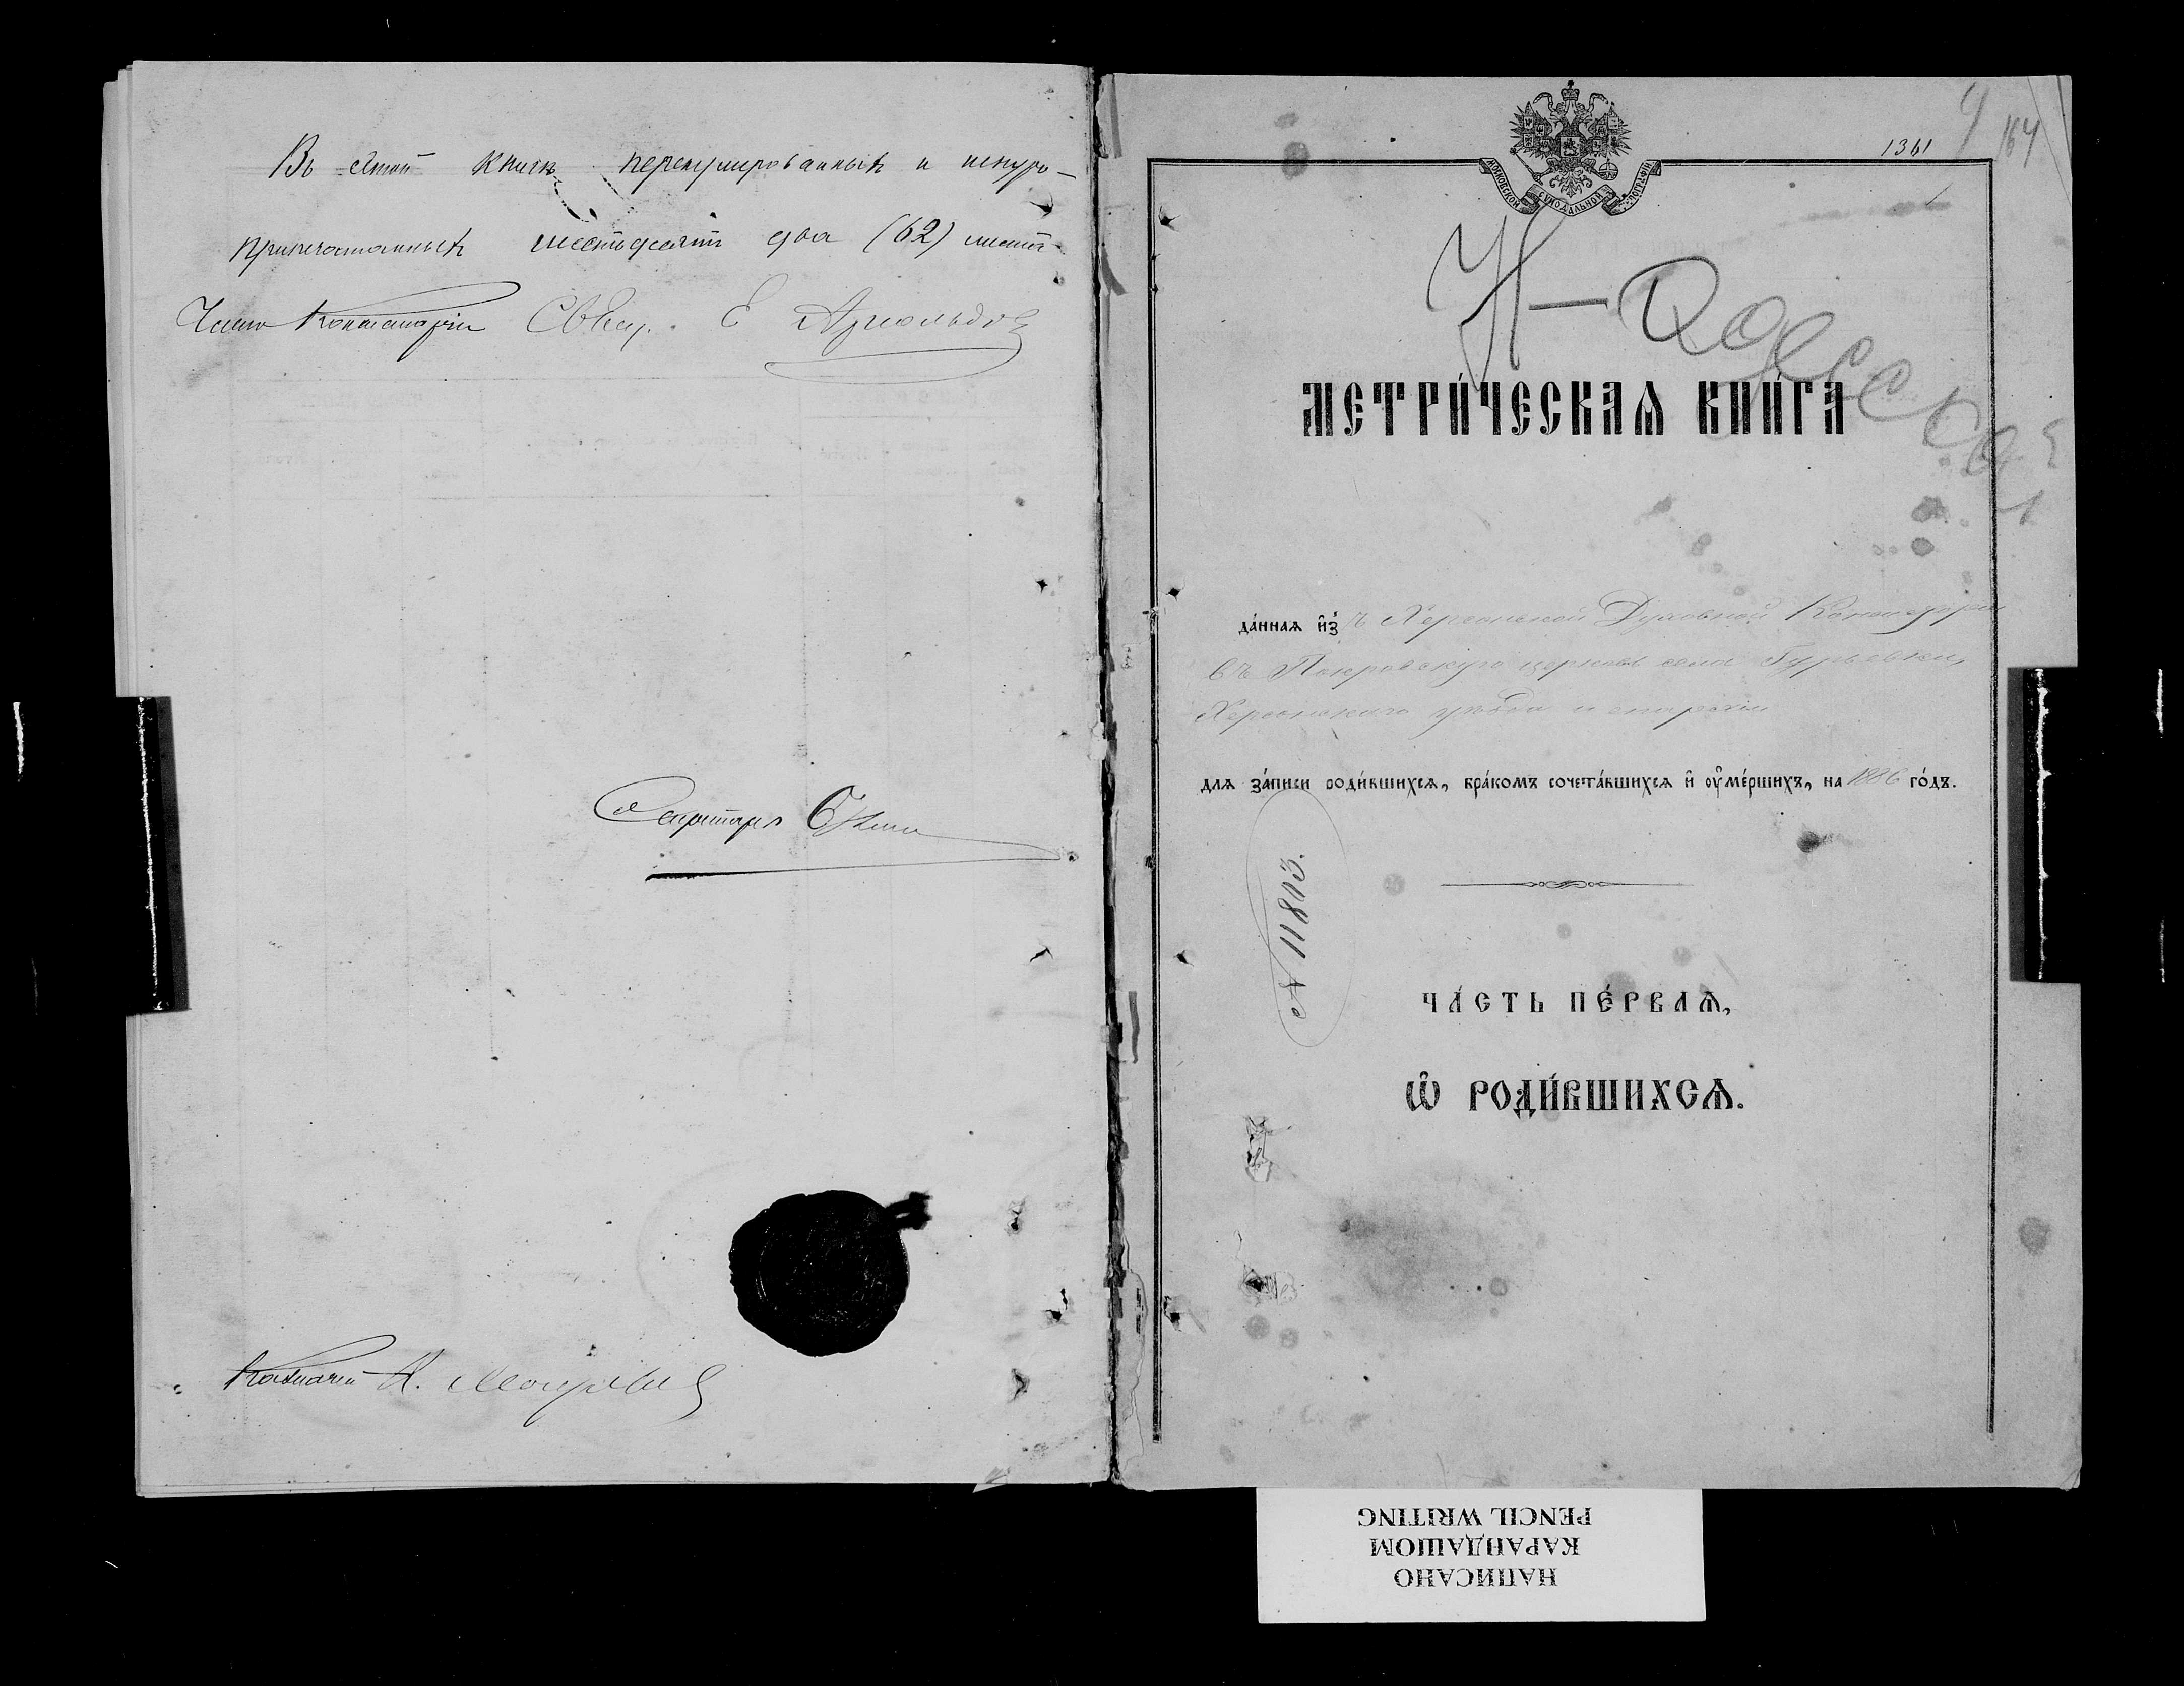 Въ этой книгѣ перенумерованныхъ и шнуро-
припечатанныхъ шестьдесятъ два (62) листа.
Членъ Консисторіи Свящ. Е Арнольдовъ
Секретарь
Казначей К.
1361
164
МОСКОВСКОЙ СѴНОДАЛЬНОЙ ТИПОГРАФІИ
Н-Одесса
МЕТРИ́ЧЕСКАѦ КНИ́ГА
да́ннаѧ и҆зъ Херсонской Духовной Консисторіи
въ Покровскую церковь села Гурьевки,
Херсонскаго уѣзда и епархіи
длѧ за́писи роди́вшихсѧ, бра́комъ сочета́вшихсѧ и҆ оу҆ме́ршихъ, на 1886 го́дъ.
№ 11803.
ЧА́СТЬ ПЕ́РВАѦ,
Ѽ РОДИ́ВШИХСѦ.
НАПИСАНО
КАРАНДАШОМ
PENCIL WRITING